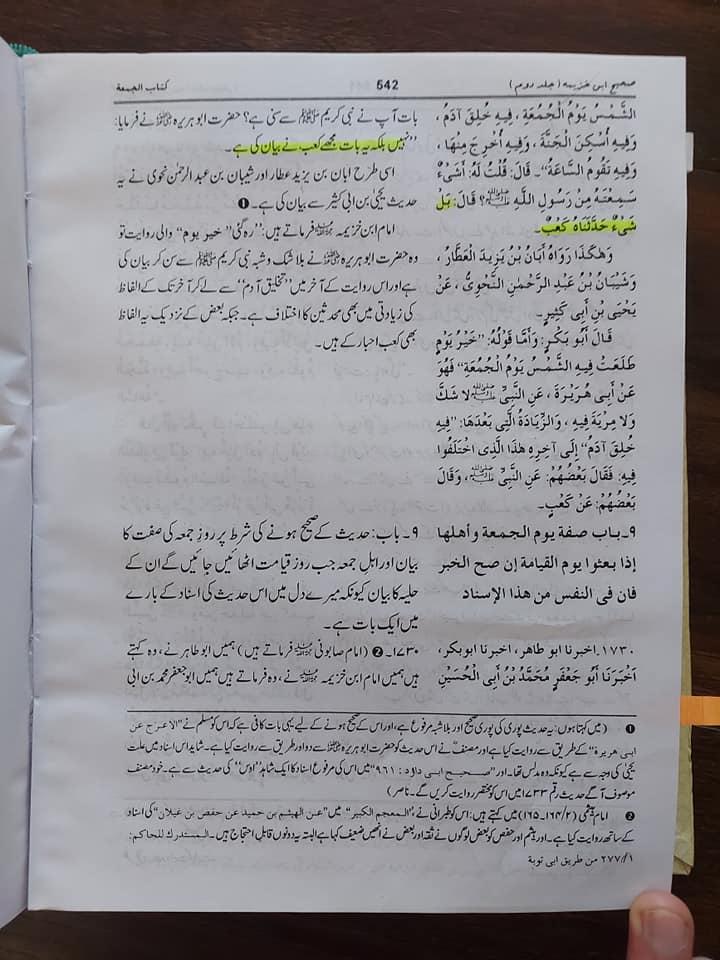 صحیح ابن خزیمہ (جلد دوم)
542
کتاب الجمعة
الشَّمْسُ يَوْمُ الْجُمُعَةِ، فِيهِ خُلِقَ آدَمُ،
وَفِيهِ أُسْكِنَ الْجَنَّةَ، وَفِيهِ أُخْرِجَ مِنْهَا،
وَفِيهِ تَقُومُ السَّاعَةُ"۔ قَالَ: قُلْتُ لَهُ: أَشَيْءٌ
سَمِعْتَهُ مِنْ رَسُولِ اللَّهِ ﷺ؟ قَالَ: بَلْ
شَيْءٌ حَدَّثَنَاهُ كَعْبٌ۔
وَهٰكَذَا رَوَاهُ أَبَانُ بْنُ يَزِيدَ الْعَطَّارُ،
وَشَيْبَانُ بْنُ عَبْدِ الرَّحْمٰنِ النَّحْوِيُّ، عَنْ
يَحْيَى بْنِ أَبِي كَثِيرٍ۔
قَالَ أَبُو بَكْرٍ: وَأَمَّا قَوْلُهُ: "خَيْرُ يَوْمٍ
طَلَعَتْ فِيهِ الشَّمْسُ يَوْمُ الْجُمُعَةِ" فَهُوَ
عَنْ أَبِي هُرَيْرَةَ، عَنِ النَّبِيِّ ﷺ لَا شَكَّ
وَلَا مِرْيَةَ فِيهِ، وَالزِّيَادَةُ الَّتِي بَعْدَهَا: "فِيهِ
خُلِقَ آدَمُ" إِلَى آخِرِهِ هٰذَا الَّذِي اخْتَلَفُوا
فِيهِ: فَقَالَ بَعْضُهُمْ: عَنِ النَّبِيِّ ﷺ، وَقَالَ
بَعْضُهُمْ: عَنْ كَعْبٍ۔
بات آپ نے نبی کریم ﷺ سے سنی ہے؟ حضرت ابو ہریرہ نے فرمایا:
"نہیں بلکہ یہ بات مجھے کعب نے بیان کی ہے۔
اسی طرح ابان بن یزید عطار اور شیبان بن عبد الرحمٰن نحوی نے یہ
حدیث یحییٰ بن ابی کثیر سے بیان کی ہے۔ ❶
امام ابن خزیمہ فرماتے ہیں: "رہ گئی" خیر یوم" والی روایت تو
وہ حضرت ابو ہریرہ نے بلا شک و شبہ نبی کریم ﷺ سے سن کر بیان کی
ہے اور اس روایت کے آخر میں "تخلیق آدم" سے لے کر آخر تک کے الفاظ
کی زیادتی میں بھی محدثین کا اختلاف ہے۔ جبکہ بعض کے نزدیک یہ الفاظ
بھی کعب احبار کے ہیں۔
۹۔ باب صفة يوم الجمعة وأهلها
إذا بعثوا يوم القيامة إن صح الخبر
فان فى النفس من هذا الإسناد
۹۔ باب: حدیث کے صحیح ہونے کی شرط پر روزِ جمعہ کی صفت کا
بیان اور اہلِ جمعہ جب روز قیامت اٹھائیں جائیں گے ان کے
حلیہ کا بیان کیونکہ میرے دل میں اس حدیث کی اسناد کے بارے
میں ایک بات ہے۔
۱۷۳۰۔ اخبرنا ابو طاهر، اخبرنا ابوبكر،
أَخْبَرَنَا أَبُو جَعْفَرٍ مُحَمَّدُ بْنُ أَبِي الْحُسَيْنِ
۱۷۳۰۔ ❷ (امام صابونی فرماتے ہیں) ہمیں ابو طاہر نے، وہ کہتے
ہیں ہمیں امام ابن خزیمہ نے، وہ فرماتے ہیں ہمیں ابو جعفر محمد بن ابی
❶ (میں کہتا ہوں: یہ حدیث پوری کی پوری صحیح اور بلاشبہ مرفوع ہے، اور اس کے صحیح ہونے کے لیے یہی بات کافی ہے کہ اس کو مسلم نے "الاعرج عن
ابی ھریرۃ" کے طریق سے روایت کیا ہے اور مصنف نے اس حدیث کو حضرت ابو ہریرہ سے دو اور طریق سے روایت کیا ہے۔ شاید اس اسناد میں علت
یحییٰ کی وجہ سے ہے کیونکہ وہ مدلس تھا۔ اور "صحیح ابی داود: ۹۶۱" میں اس کی مرفوع اسناد کا ایک شاہد "اوس" کی حدیث سے ہے۔ خود مصنف
موصوف آگے حدیث رقم ۱۷۳۳ میں اس کو مختصر روایت کریں گے۔ ناصر)
❷ امام ہیثمی (۲/۱۶۴۔۱۶۵) میں کہتے ہیں: اس کو طبرانی نے "المعجم الکبیر" میں "عن الهيثم بن حميد عن حفص بن غيلان" کی اسناد
کے ساتھ روایت کیا ہے۔ اور ہیثم اور حفص کو بعض لوگوں نے ثقہ اور بعض نے انھیں ضعیف کہا ہے البتہ یہ دونوں قابلِ احتجاج ہیں۔ المستدرك للحاكم:
۱/۲۷۷ من طريق ابى توبة